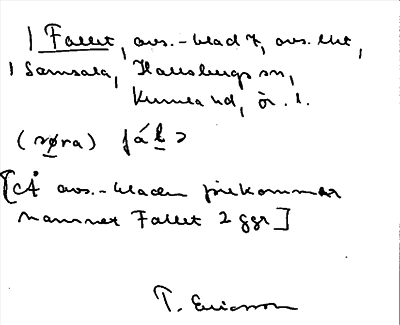 | Fallet, avs.-blad 7, avs. lht,
| Samsala, Hallsbergs sn,
Kumla hd, ör. l.
(nøra) fál
[På avs.-bladen förekommer
namnet Fallet 2 ggr]
T. Ericsson